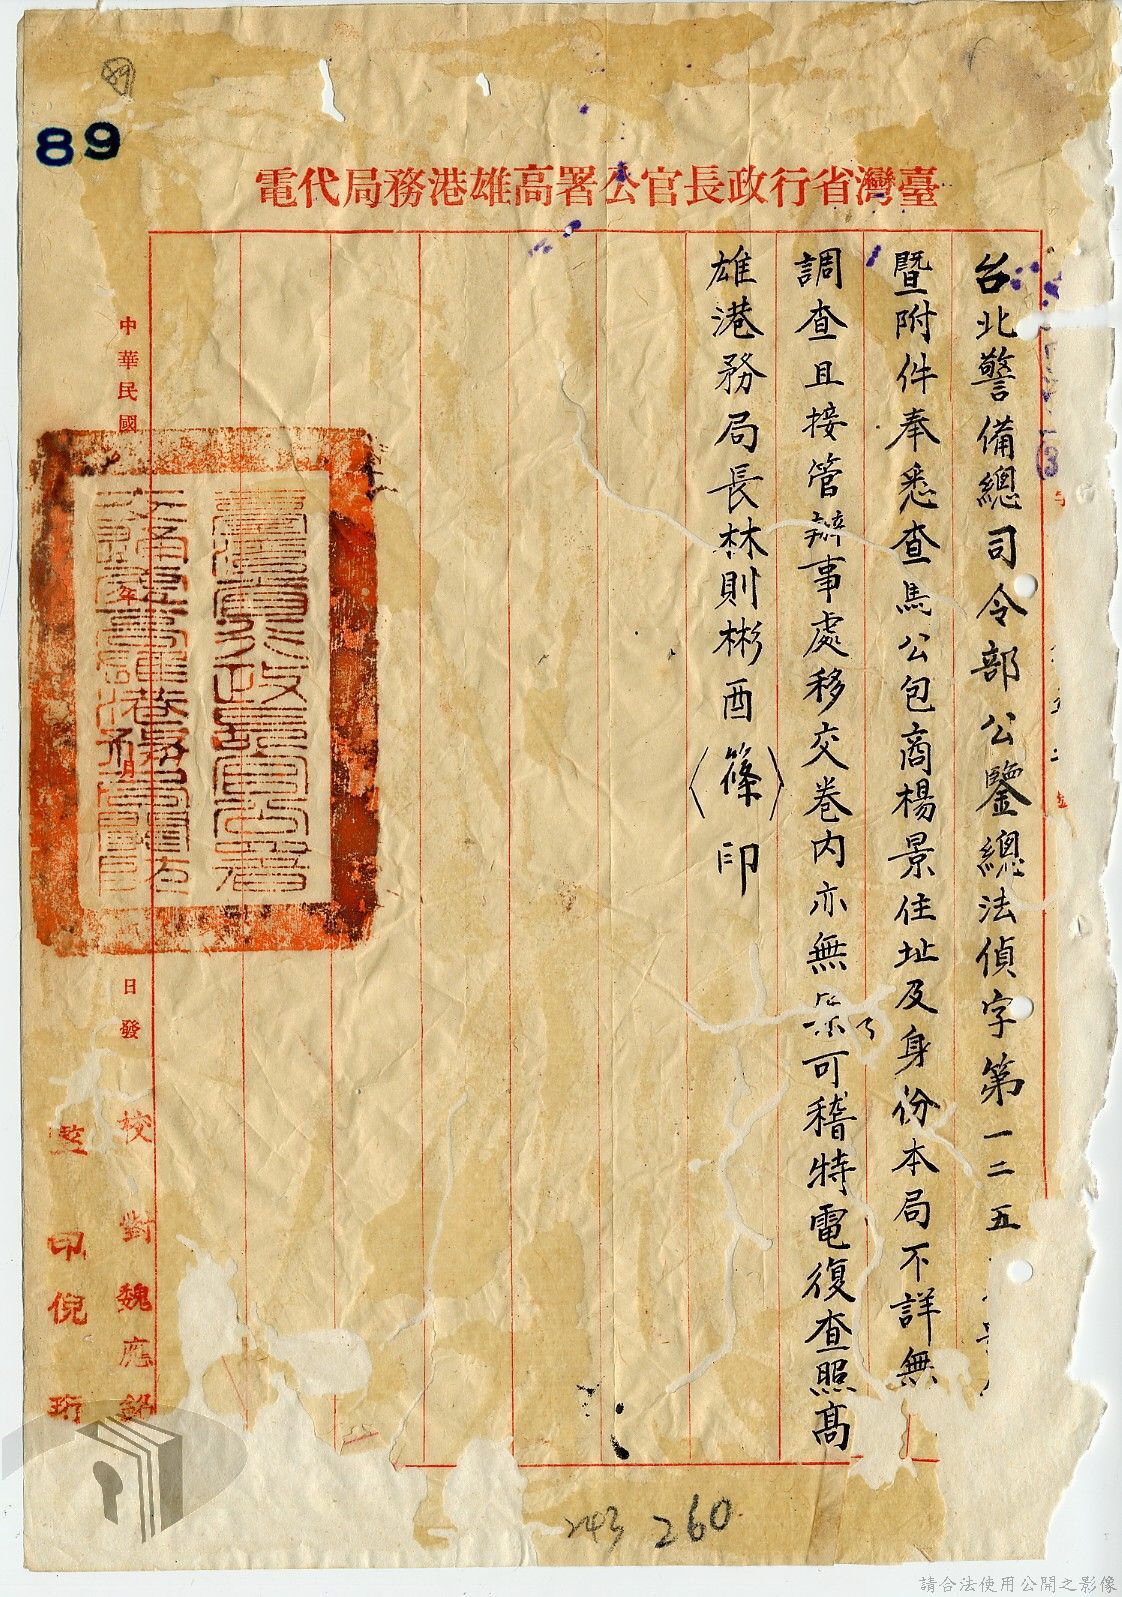 89
89
臺灣省行政長官公署高雄港務局代電
台北警備總司令部公鑒總法偵字第一二五
暨附件奉悉查馬公包商楊景住址及身份本局不詳無
調查且接管辦事處移交卷內亦無可稽特電復查照高
雄港務局長林則彬酉(篠)印
中華民國年月日發
校對魏應
監印倪珩
臺灣省行政長官公署
243 260
請合法使用公開之影像